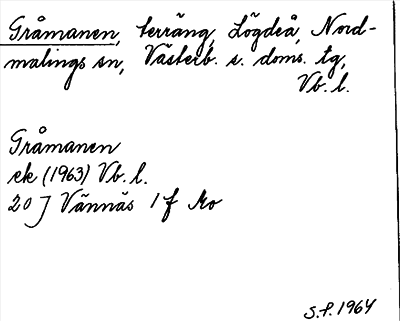 Gråmanen, terräng, Lögdeå, Nord-
malings sn, Västerb. s. doms. tg,
Vb. l.
Gråmanen
ek (1963) Vb. l.
20 J Vännäs 1 f Mo
S.P. 1964